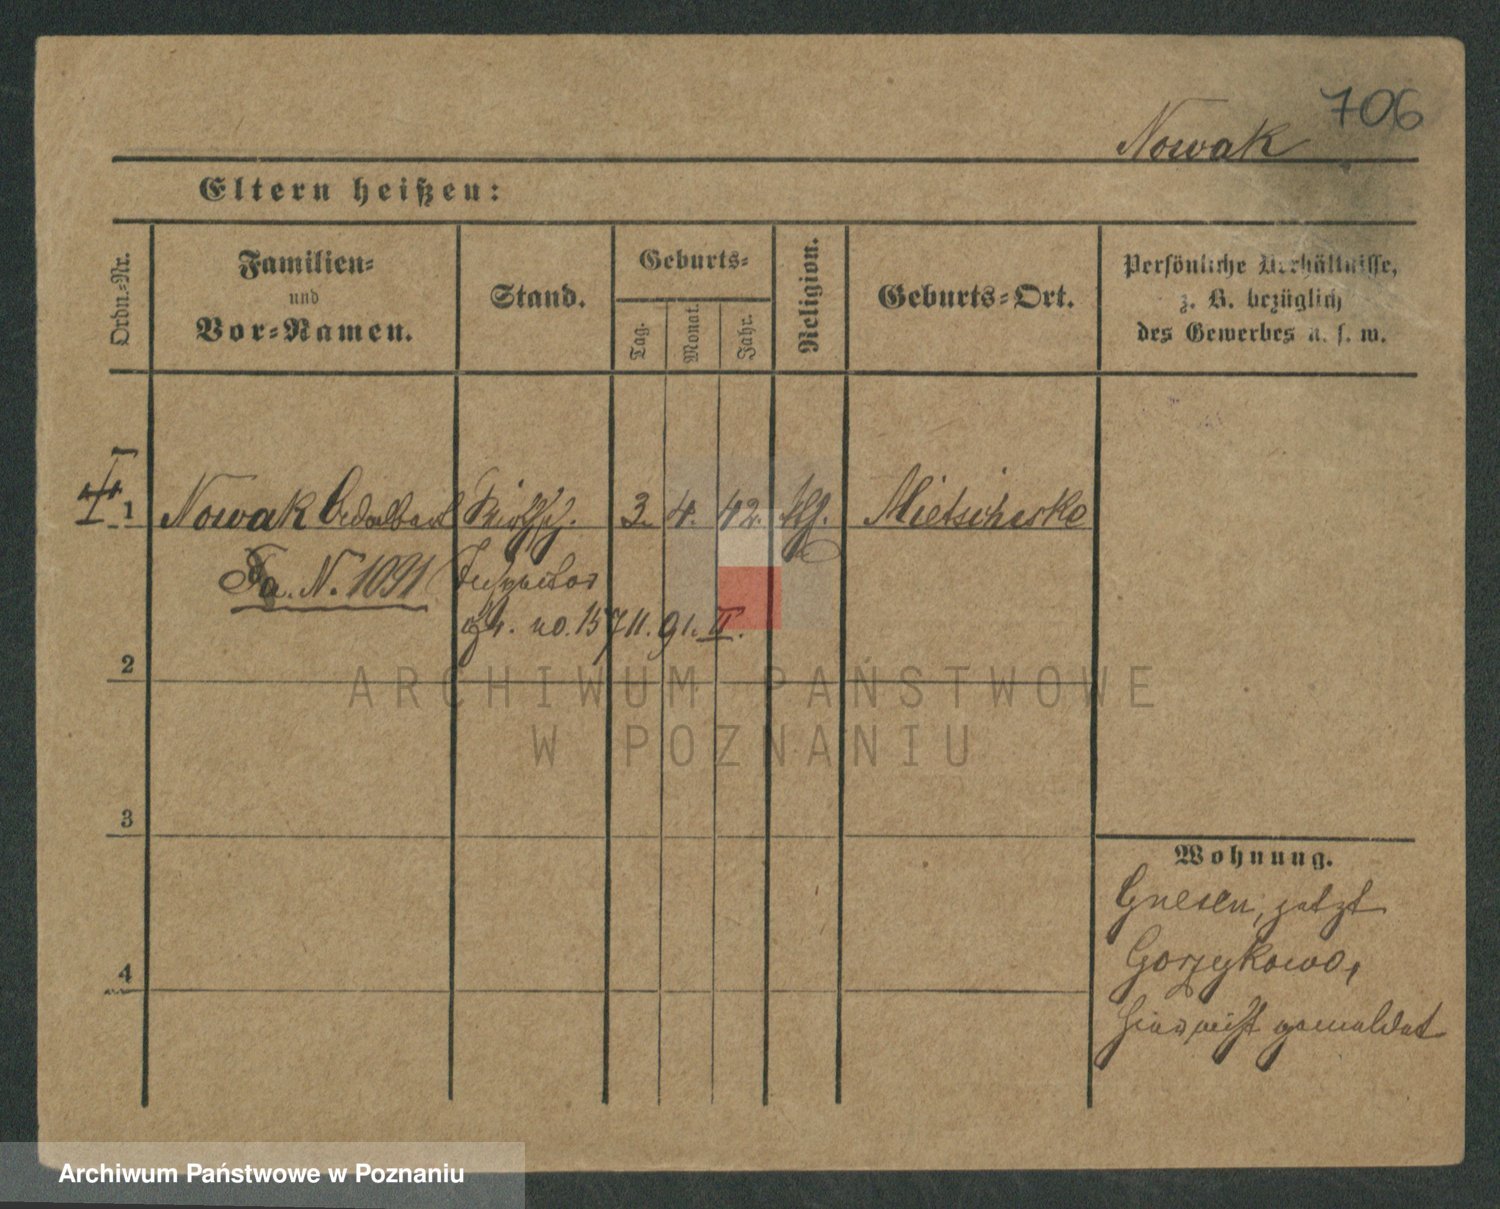 706
Nowak
Eltern heißen:
Ordn.-Nr.
Familien-
und
Vor-Namen.
Stand.
Geburts-
Tag.
Monat.
Jahr.
Religion.
Geburts-Ort.
Persönliche Verhältnisse,
z. B. bezüglich
des Gewerbes u. s. w.
I
1 Nowak Adalbert 3. 4. 42.
Fa. N. 1091
no. 15711. 91. II.
2
ARCHIWUM PAŃSTWOWE
W POZNANIU
3
Wohnung.
Gnesen, jetzt
Gorzykowo,
hier nicht gemeldet
4
Archiwum Państwowe w Poznaniu